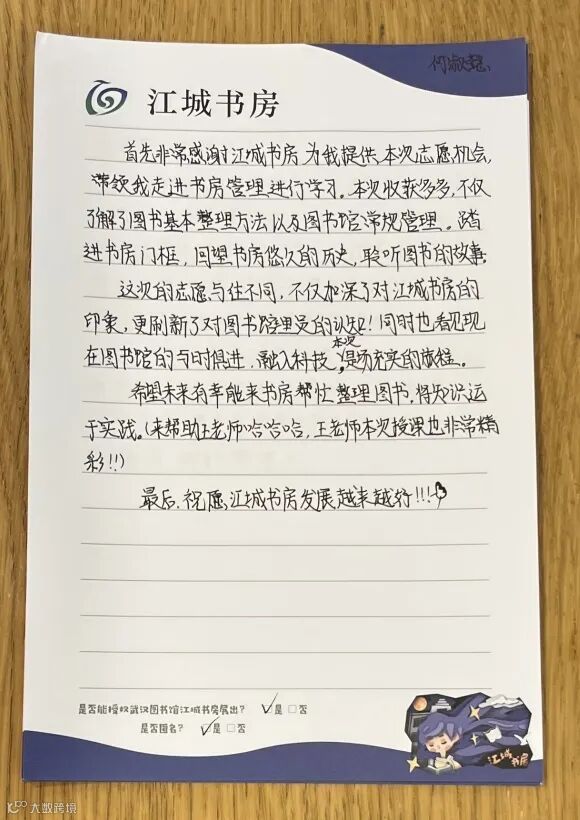 何淑慧
江城书房
首先非常感谢江城书房为我提供本次志愿机会,
带领我走进书房管理进行学习。本次收获多多,不仅
了解了图书基本整理方法以及图书馆常规管理。踏
进书房门框,回望书房悠久的历史,聆听图书的故事。
这次的志愿与往不同,不仅加深了对江城书房的
印象,更刷新了对图书馆理员的认知!同时也看见现
在图书馆的与时俱进,融入科技,本次是场充实的旅程。
希望未来有幸能来书房帮忙整理图书,将知识运
于实践。(来帮助王老师哈哈哈,王老师本次授课也非常精
彩!!)
最后,祝愿江城书房发展越来越行!!!
是否能授权武汉图书馆江城书房展出? ☑是 □否
是否匿名? ☑是 □否
江城书房
大数跨境